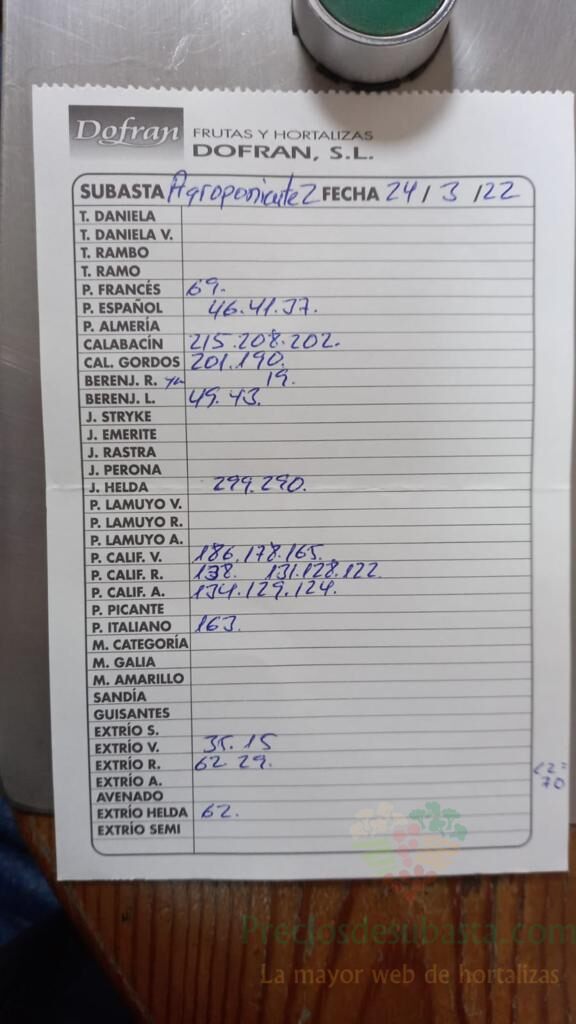 Dofran FRUTAS Y HORTALIZAS
DOFRAN, S.L.
SUBASTA Agroponiente 2 FECHA 24 / 3 / 22
T. DANIELA
T. DANIELA V.
T. RAMBO
T. RAMO
P. FRANCÉS 69.
P. ESPAÑOL 46.41.37.
P. ALMERÍA
CALABACÍN 215.208.202.
CAL. GORDOS 201.190.
BERENJ. R. 19.
BERENJ. L. 49.43.
J. STRYKE
J. EMERITE
J. RASTRA
J. PERONA
J. HELDA 299.290.
P. LAMUYO V.
P. LAMUYO R.
P. LAMUYO A.
P. CALIF. V. 186.178.165.
P. CALIF. R. 138. 131.128.122.
P. CALIF. A. 134.129.124.
P. PICANTE
P. ITALIANO 163.
M. CATEGORÍA
M. GALIA
M. AMARILLO
SANDÍA
GUISANTES
EXTRÍO S.
EXTRÍO V. 35. 15
EXTRÍO R. 62 29.
EXTRÍO A.
AVENADO
EXTRÍO HELDA 62.
EXTRÍO SEMI
70
Preciosdesubasta.com
La mayor web de hortalizas